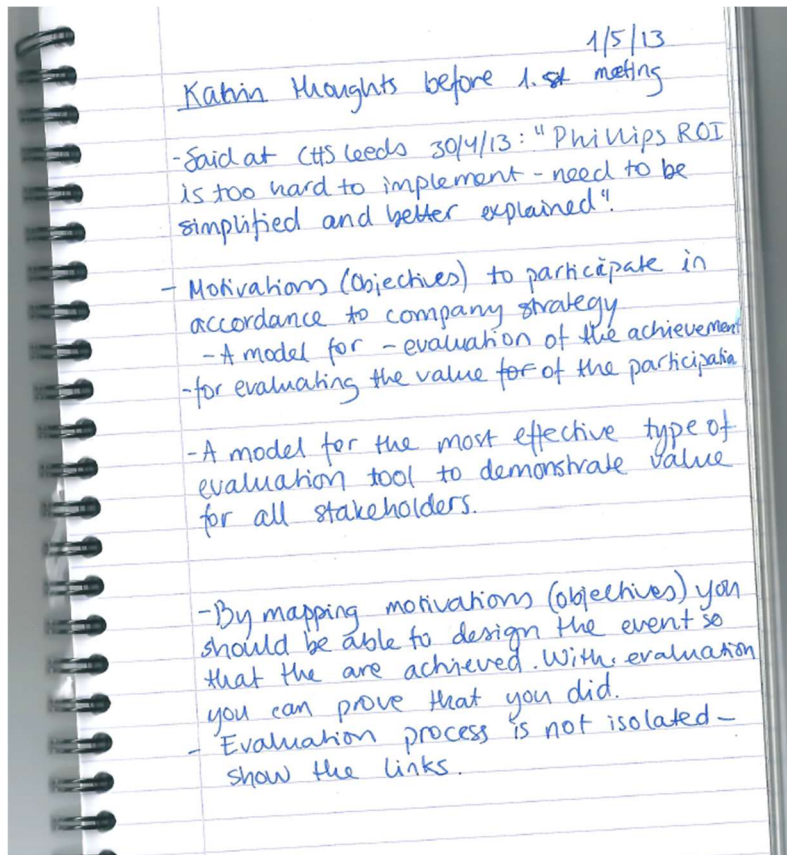 1/5/13
Katrin thoughts before 1. st meeting
- Said at CHS Leeds 30/4/13: "Phillips ROI
is too hard to implement - need to be
simplified and better explained".
- Motivations (Objectives) to participate in
accordance to company strategy
- A model for - evaluation of the achievement
- for evaluating the value for of the participatio
- A model for the most effective type of
evaluation tool to demonstrate value
for all stakeholders.
- By mapping motivations (objectives) you
should be able to design the event so
that the are achieved. With evaluation
you can prove that you did.
- Evaluation process is not isolated -
show the links.